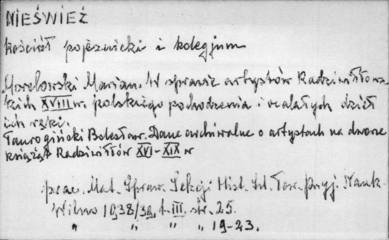 NIEŚWIEŻ
kościół pojezuicki i kolegjum
Morelowski Marian. W sprawie artystów Radziwiłłows-
kich XVIII w. polskiego pochodzenia i ocalałych dzieł
ich ręki.
Taurogiński Bolesław. Dane archiwalne o artystach na dworze
książąt Radziwiłłów XVI-XIX w
prac. Mat. Spraw. Sekcji Hist. Szt. Tow. Przyj. Nauk
Wilno 1938/39, t. III. str. 25.
" " " 19-23.